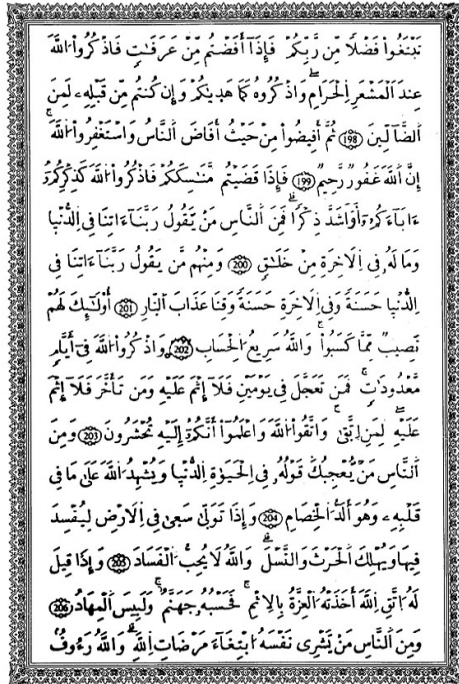 تَبْتَغُواْ فَضْلاً مِّن رَّبِّكُمْ فَإِذَآ أَفَضْتُم مِّنْ عَرَفَٰتٍ فَاذْكُرُواْ اللَّهَ
عِندَ الْمَشْعَرِ الْحَرَامِ وَاذْكُرُوهُ كَمَا هَدٜىٰكُمْ وَإِن كُنتُم مِّن قَبْلِهِۦ لَمِنَ
اَلضَّآلِّينَ 198 ثُمَّ أَفِيضُواْ مِنْ حَيْثُ أَفَاضَ اَلنَّاسُ وَاسْتَغْفِرُواْ اللَّهَ
إِنَّ اَللَّهَ غَفُورٌ رَّحِيمٌ 199 فَإِذَا قَضَيْتُم مَّنَٰسِكَكُمْ فَاذْكُرُواْ اللَّهَ كَذِكْرِكُمُۥٓ
ءَابَآءَكُمُۥٓ أَوْ أَشَدَّ ذِكْراً فَمِنَ اَلنَّاسِ مَنْ يَقُولُ رَبَّنَآ ءَاتِنَا فِي اِلدُّنْيَا
وَمَا لَهُۥ فِي اِلَاخِرَةِ مِنْ خَلَٰقٍ 200 وَمِنْهُم مَّن يَقُولُ رَبَّنَآ ءَاتِنَا فِي
اِلدُّنْيَا حَسَنَةً وَفِي اِلَاخِرَةِ حَسَنَةً وَقِنَا عَذَابَ اَلنَّارِ 201 أُوْلَٰٓئِكَ لَهُمْ
نَصِيبٌ مِّمَّا كَسَبُواْ وَاللَّهُ سَرِيعُ اُلْحِسَابِ 202 وَاذْكُرُواْ اللَّهَ فِيٓ أَيَّامٍ
مَّعْدُودَٰتٍ فَمَن تَعَجَّلَ فِي يَوْمَيْنِ فَلَآ إِثْمَ عَلَيْهِ وَمَن تَأَخَّرَ فَلَآ إِثْمَ
عَلَيْهِ لِمَنِ اِتَّقٜىٰ وَاتَّقُواْ اللَّهَ وَاعْلَمُوٓاْ أَنَّكُمُۥٓ إِلَيْهِ تُحْشَرُونَ 203 وَمِنَ
اَلنَّاسِ مَنْ يُعْجِبُكَ قَوْلُهُۥ فِي اِلْحَيَوٰةِ اِلدُّنْيَا وَيُشْهِدُ اُللَّهَ عَلَىٰ مَا فِي
قَلْبِهِۦ وَهُوَ أَلَدُّ اُلْخِصَامِ 204 وَإِذَا تَوَلّٜىٰ سَعٜىٰ فِي اِلَارْضِ لِيُفْسِدَ
فِيهَا وَيُهْلِكَ اَلْحَرْثَ وَالنَّسْلَ وَاللَّهُ لَا يُحِبُّ اُلْفَسَادَ 205 وَإِذَا قِيلَ
لَهُ اُتَّقِ اِللَّهَ أَخَذَتْهُ اُلْعِزَّةُ بِالِاثْمِ فَحَسْبُهُۥ جَهَنَّمُ وَلَبِيسَ اَلْمِهَادُ 206
وَمِنَ اَلنَّاسِ مَنْ يَّشْرِي نَفْسَهُ اُبْتِغَآءَ مَرْضَاتِ اِللَّهِ وَاللَّهُ رَءُوفٌ